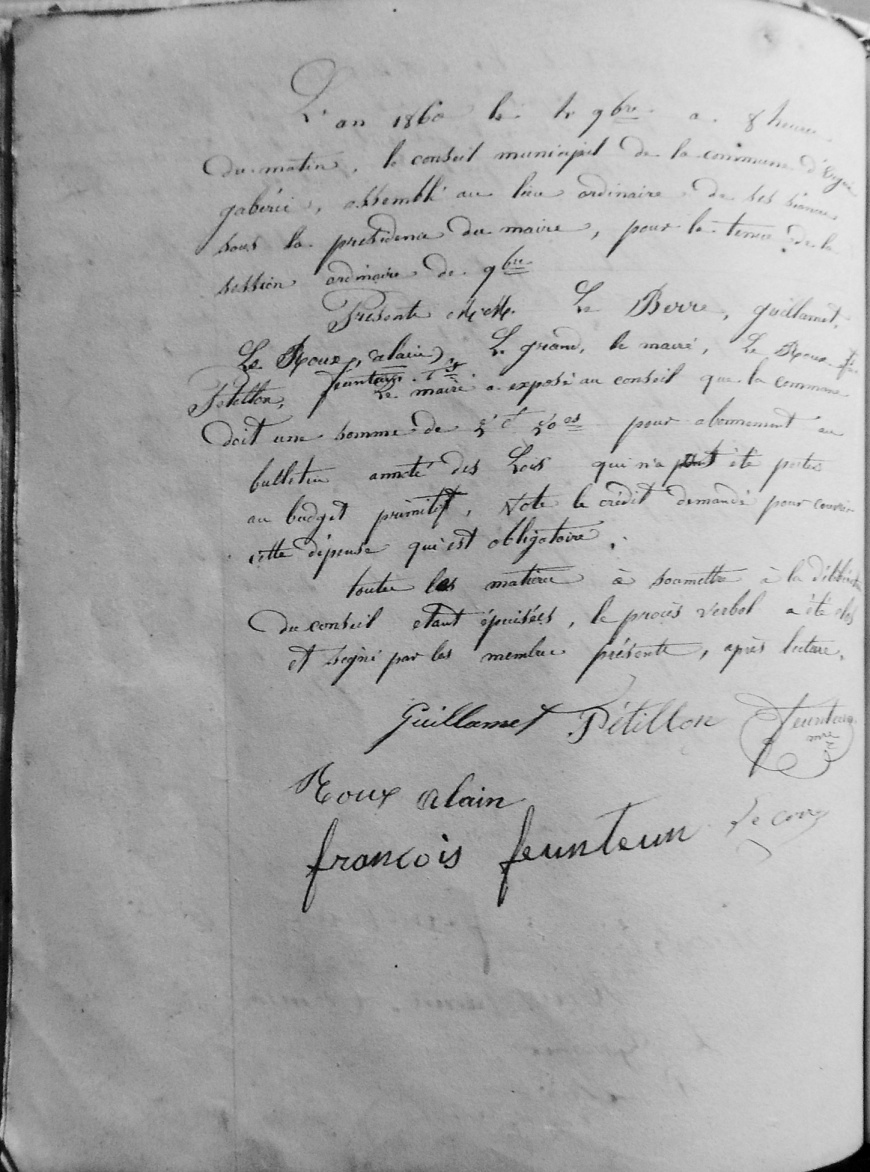 L'an 1860 le 9bre a 8 heures
du matin, le conseil municipal de la commune d'Ergue
gabéric, assemblé au lieu ordinaire de ses séances
sous la présidence du maire, pour la tenue de la
session ordinaire de 9bre
Présents MM. Le Berre, guillamet,
Le Roux, alain, Le grand, le maire, Le Roux
Petillon, feunteun
Le maire a exposé au conseil que la commune
doit une somme de pour abonnement au
bulletin annoté des Lois qui n'a pas été portée
au budget primitif, Vote le crédit demandé pour couvrir
cette dépense qui est obligatoire.
toutes les matières à soumettre à la délibération
du conseil étant épuisées, le procès verbal a été clos
et signé par les membres présents, après lecture.
Guillamet Pétillon feunteun mre
Roux alain
françois feunteun Le corre